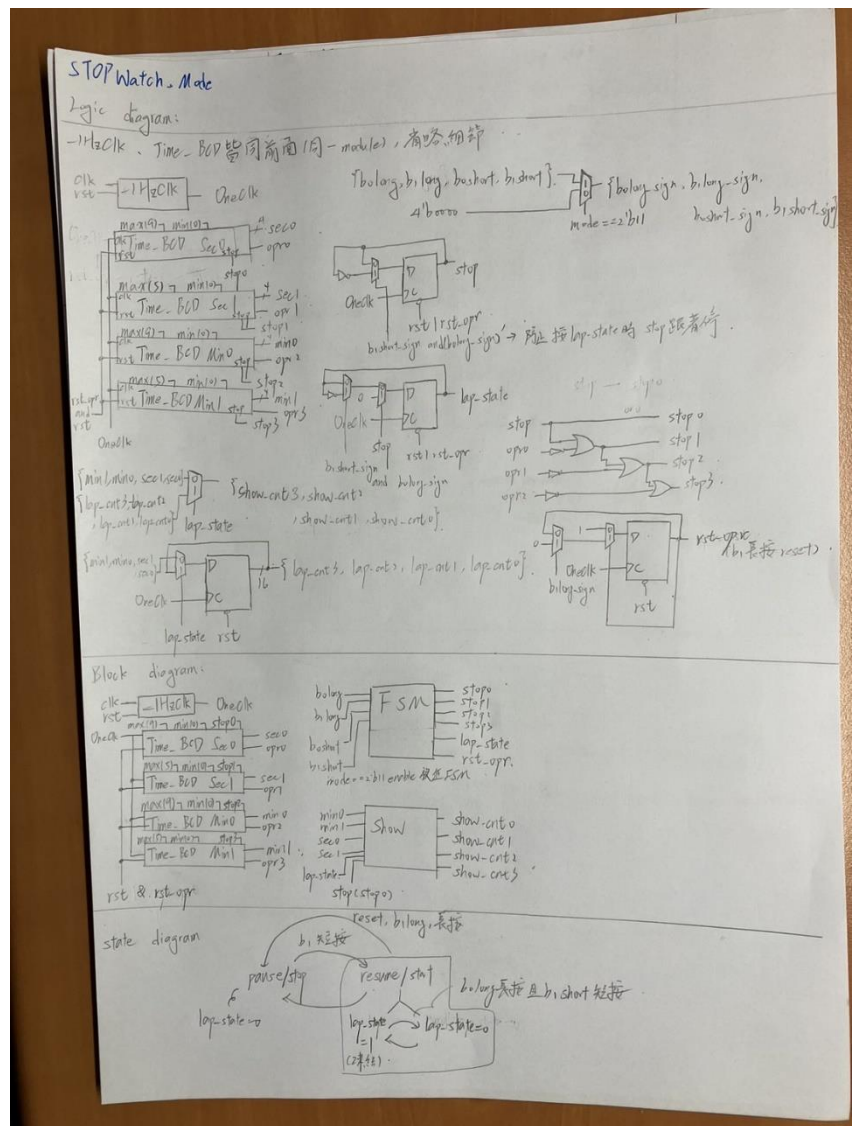 STOPWatch Mode
Logic diagram:
-1HzClk、Time_BCD皆同前面(同一module),省略細節
clk
rst
-1HzClk
OneClk
{b0long, b1long, b0short, b1short}
4'b0000
mode==2'b11
{b0long_sign, b1long_sign,
b0short_sign, b1short_sign}
max(9) min(0)
clk
Time_BCD Sec0
rst
stop
4
sec0
opr0
stop0
max(5) min(0)
clk
rst Time_BCD Sec1
stop
4
sec1
opr1
stop1
max(9) min(0)
clk
rst Time_BCD Min0
stop
4
min0
opr2
stop2
max(5) min(0)
clk
rst Time_BCD Min1
stop
4
min1
opr3
stop3
rst_opr
and
rst
OneClk
D
C
OneClk
stop
rst | rst_opr
b1short_sign and(b0long_sign)' → 防止按lap-state時 stop跟著停.
0
D
C
OneClk
stop
lap_state
rst | rst_opr
b1short_sign
and b0long_sign
stop
opr0
opr1
opr2
stop0
stop1
stop2
stop3
{min1,min0,sec1,sec0}
{lap_cnt3,lap_cnt2
,lap_cnt1,lap_cnt0}
lap_state
{show_cnt3,show_cnt2
,show_cnt1,show_cnt0}
{min1,min0,sec1
sec0}
D
C
OneClk
lap_state
rst
16
{lap_cnt3, lap_cnt2, lap_cnt1, lap_cnt0}
0
1
D
C
OneClk
b1long_sign
rst
rst_opr
(b1長按reset)
Block diagram:
clk
rst
-1HzClk
OneClk
OneClk
max(9) min(0) stop0
Time_BCD Sec0
sec0
opr0
max(5) min(0) stop1
Time_BCD Sec1
sec1
opr1
max(9) min(0) stop2
Time_BCD Min0
min0
opr2
Time_BCD Min1
min1
opr3
rst & rst_opr
b0long
b1long
b0short
b1short
FSM
stop0
stop1
stop2
stop3
lap_state
rst_opr.
mode==2'b11 enable FSM
min0
min1
sec0
sec1
lap_state
stop(stop0)
Show
show_cnt0
show_cnt1
show_cnt2
show_cnt3
state diagram
reset, b1long, 長按
b1短按
pause/stop
resume/start
lap_state=0
lap_state
=1
(凍結)
lap_state=0
b0long長按且b1short短按